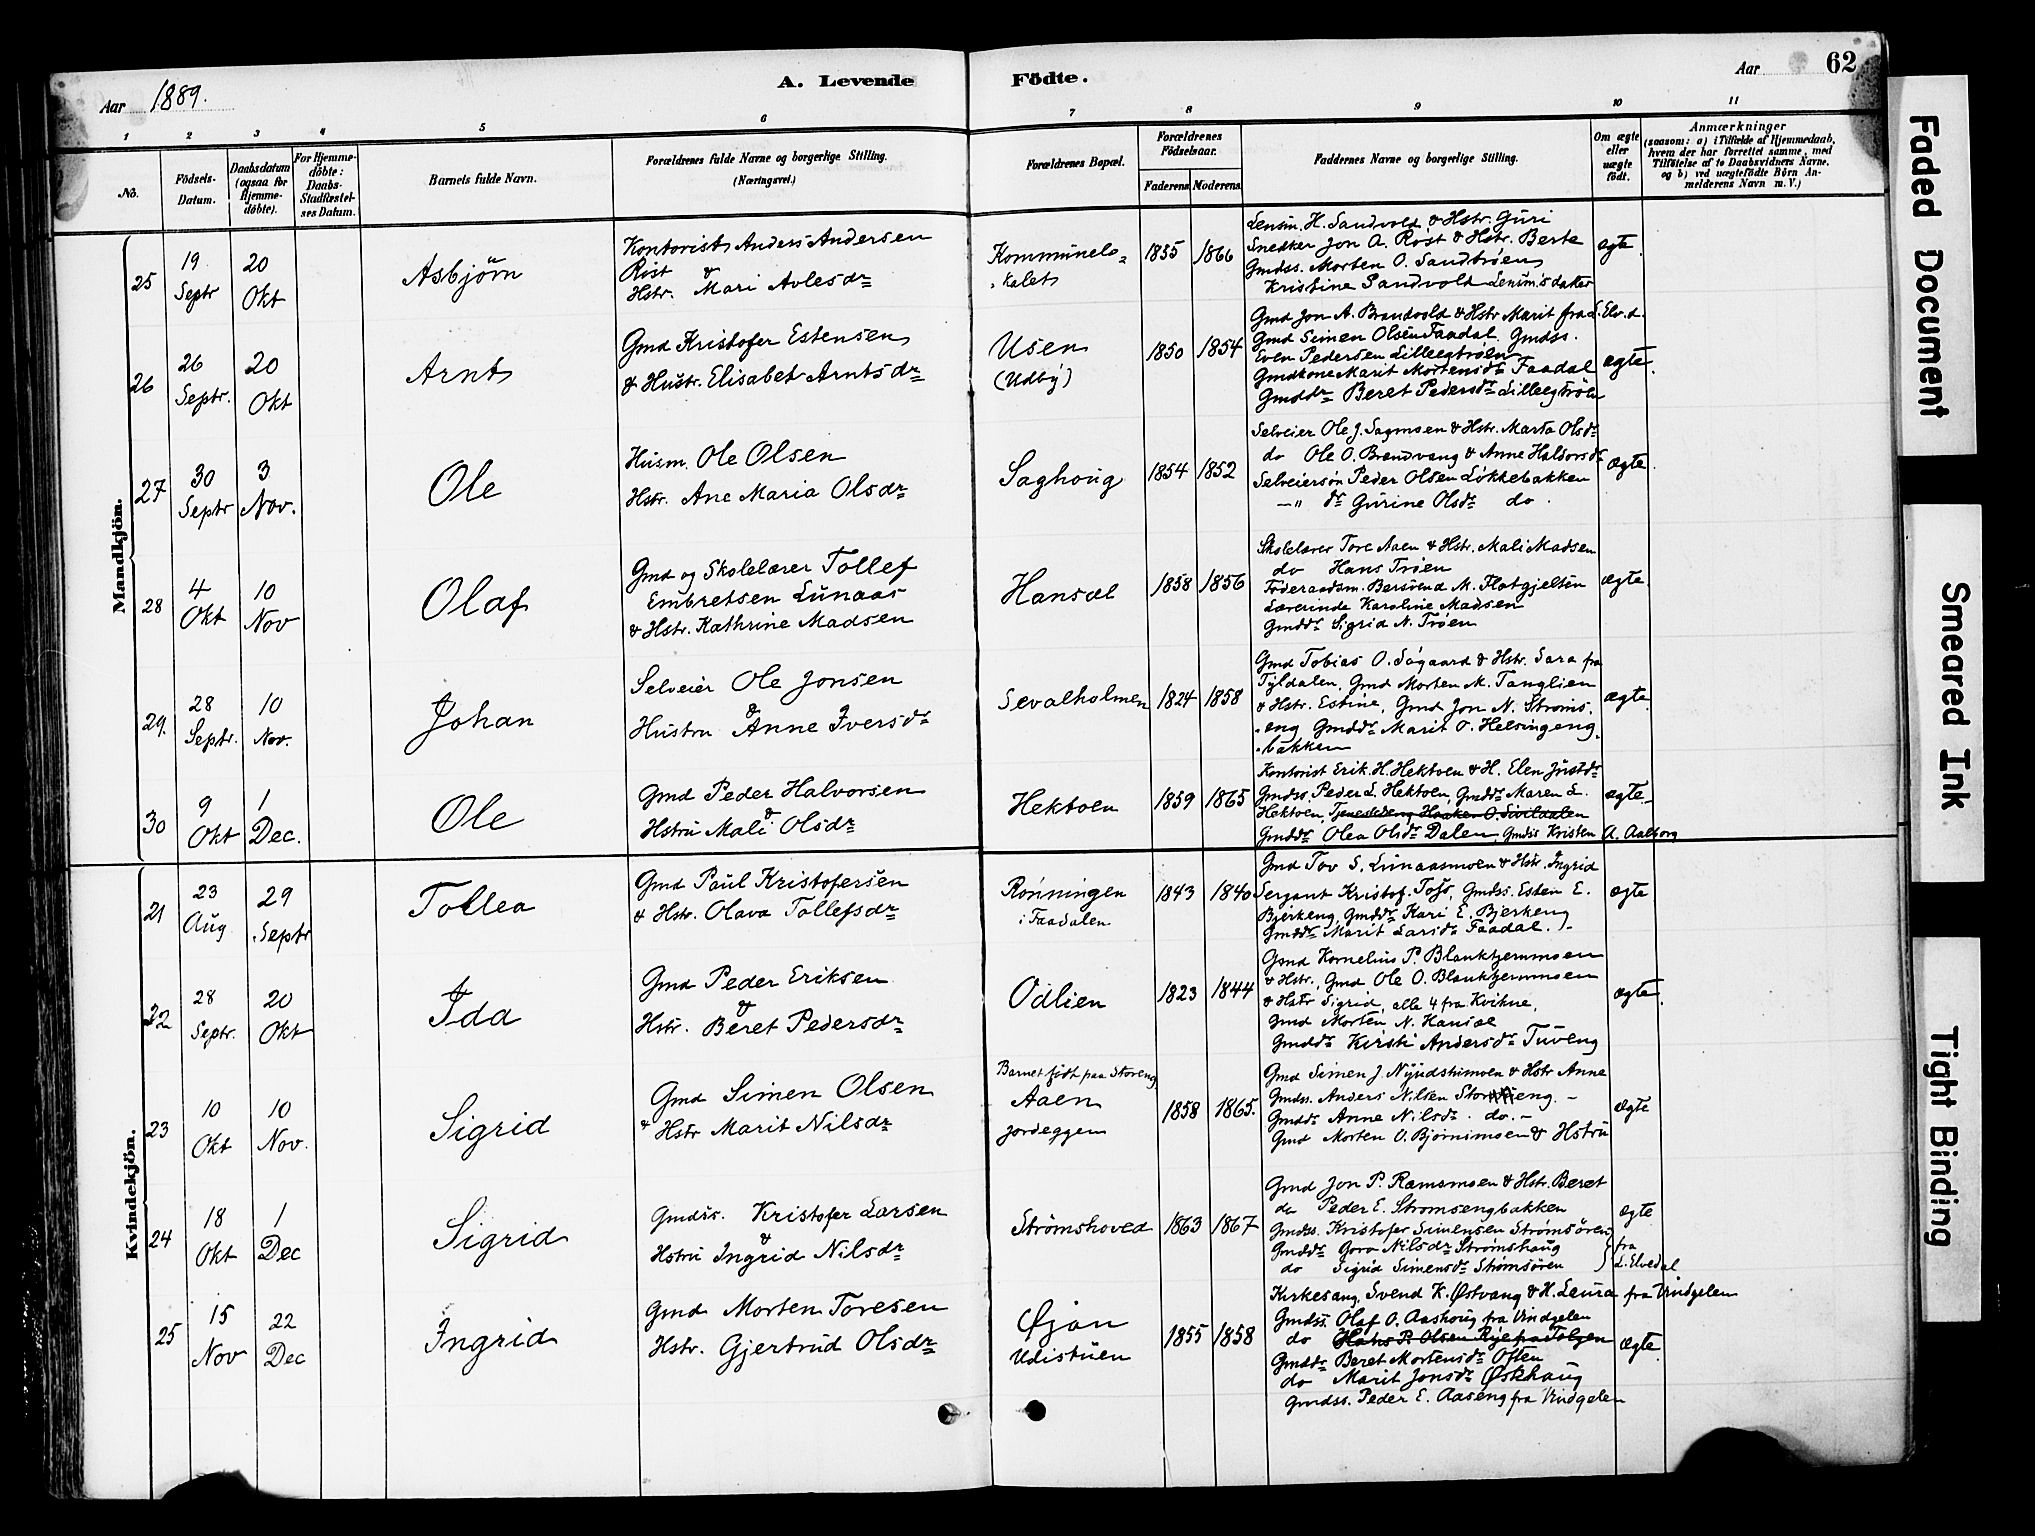 Aar 1889.
A. Levende Födte.
Aar 62
1 2 3 4 5 6 7 8 9 10 11
No.
Födsels-Datum.
Daabsdatum (ogsaa for Hjemme-döbte).
For Hjemme-döbte: Daabs-Stadfæstel-ses Datum.
Barnets fulde Navn.
Forældrenes fulde Navne og borgerlige Stilling. (Næringsvei.)
Forældrenes Bopæl.
Forældrenes Födselsaar.
Faderens Moderens.
Faddernes Navne og borgerlige Stilling.
Om ægte eller uægte födt.
Anmærkninger
(saasom: a) i Tilfælde af Hjemmedaab,
hvem der har forrettet samme, med
Tilföielse af to Daabsvidners Navne,
og b) ved uægtefödte Börn An-
melderens Navn m. V.)
Mandkjön.
25
19 Septr
20 Okt
Asbjörn
Kontorist Anders Andersen
Röst &
Hstr. Mari Avlesdr
Kommunelo-
kalet
1855 1866
Lensm. H. Sandvold & Hstr. Guri
Snedker Jon A. Røst & Hstr. Berte
Gmdss. Morten O. Sandtrøen
Kristine Sandvold Lensm's datter
ægte.
26
26 Septr.
20 Okt
Arnt
Gmd Kristofer Estensen
& Hustr. Elisabet Arntsdr
Usen
(Udby)
1850 1854
Gmd Jon A. Brandvold & Hstr Marit fra L. Elv.d.
Gmd Simen Olsen Faadal. Gmdss.
Even Pedersen Lilleegtrøen
Gmdkone Marit Mortensdr Faadal
Gmddr Beret Pedersdr Lilleegtröen
ægte.
27
30 Septr
3 Nov.
Ole
Husm. Ole Olsen
Hstr. Ane Maria Olsdr
Saghoug
1854 1852
Selveier Ole J. Sagmoen & Hstr. Marta Olsdr
do Ole O. Brandvang & Anne Halvorsdr
Selveiersøn Peder Olsen Løkkebakken
-"- dr Gurine Olsdr do.
ægte.
28
4 Okt
10 Nov
Olaf
Gmd og Skolelærer Tollef
Embretsen Lunaas
& Hstr. Kathrine Madsen
Hansæl
1858 1856
Skolelærer Tore Aaen & Hstr. Mali Madsen
do Hans Trøen
Föderaadsm. Bersvend M. Flatgjelten
Lærerinde Karoline Madsen
Gmddr Sigrid N. Trøen
ægte
29.
28 Septr.
10 Nov.
Johan
Selveier Ole Jonsen
&
Hustru Anne Iversdr
Sevalholmen
1824 1858
Gmd Tobias O. Søgaard & Hstr. Sara fra
Tyldalen, Gmd Morten M. Tanglien
& Hstr. Estine, Gmd Jon N. Strøms-
eng Gmddr Marit O. Helsingeng-
bakken
ægte.
30
9 Okt
1 Dec.
Ole
Gmd Peder Halvorsen
&
Hstru Mali Olsdr
Hektoen
1859 1865
Kontorist Erik. H. Hektoen & H. Elen Justdr
Gmdss. Peder L. Hektoen, Gmddr Maren L.
Hektoen, Tjenestdreng Haaken O. Sivildalen
Gmddr Olea Olsdr Dalen, Gmdss Kristen A. Aalborg
ægte.
Kvindekjön.
21
23 Aug
29 Septr
Tollea
Gmd Paul Kristofersen
& Hstr. Olava Tollefsdr
Rønningen
i Faadalen
1843 1840
Gmd Tov S. Lunaasmoen & Hstr. Ingrid
Sergant Kristof. Tofs, Gmdss. Esten E.
Bjerkeng, Gmddr Kari E. Bjerkeng
Gmddr Marit Larsdr Faadal.
ægte
22
28 Septr.
20 Okt
Ida
Gmd Peder Eriksen
&
Hstr. Beret Pedersdr
Odlien
1823 1844
Gmd Kornelius P. Blanktjernmoen
& Hstr., Gmd Ole O. Blanktjernmoen
& Hstr Sigrid, alle 4 fra Kvikne,
Gmd Morten N. Hansæl
Gmddr Kirsti Andersdr Tuveng
ægte.
23
10 Okt
10 Nov.
Sigrid
Gmd Simen Olsen
& Hstr Marit Nilsdr
Barnet født paa Storeng
Aaen
Jordeggen
1858 1865.
Gmd Simen J. Nyudstumoen & Hstr Anne
Gmdss. Anders Nilsen Storeng.
Gmddr Anne Nilsdr. do.
Gmd Morten O. Bjørnimoen & Hstru
ægte
24
18 Okt
1 Dec
Sigrid
Gmdss. Kristofer Larsen
&
Hstru Ingrid Nilsdr
Strømshoved
1863 1867
Gmd Jon P. Ramsmoen & Hstr. Beret
do Peder E. Strømsengbakken
Gmdss. Kristofer Simensen Strømsören
Gmddr Goro Nilsdr Strømshaug
do Sigrid Simensdr Strømsören
fra
L. Elvedal
ægte
25
15 Nov
22 Dec
Ingrid
Gmd Morten Toresen
Hstr. Gjertrud Olsdr
Øian
Udistuen
1855 1858
Kirkesang. Svend K. Østvang & H. Laura fra Vindgelen
Gmdss. Olaf O. Aashoug fra Vindgelen
do Hans P. Olsen Rye fra Tolgen
Gmddr Beret Mortensdr Often
do Marit Jonsdr Østhaug
Gmdss. Peder E. Aaseng fra Vindgelen
ægte.
Faded Document
Smeared Ink
Tight Binding